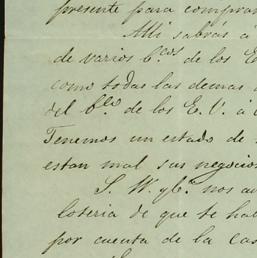 presente para compra
Alli sabrás á
de varios b.cos de los E
como todas las demas
del b.co de los E. U. á
Tenemos un estado de
estan mal sus negocio
S. W. y C.ª nos a
loteria de que te ha
por cuenta de la Cas